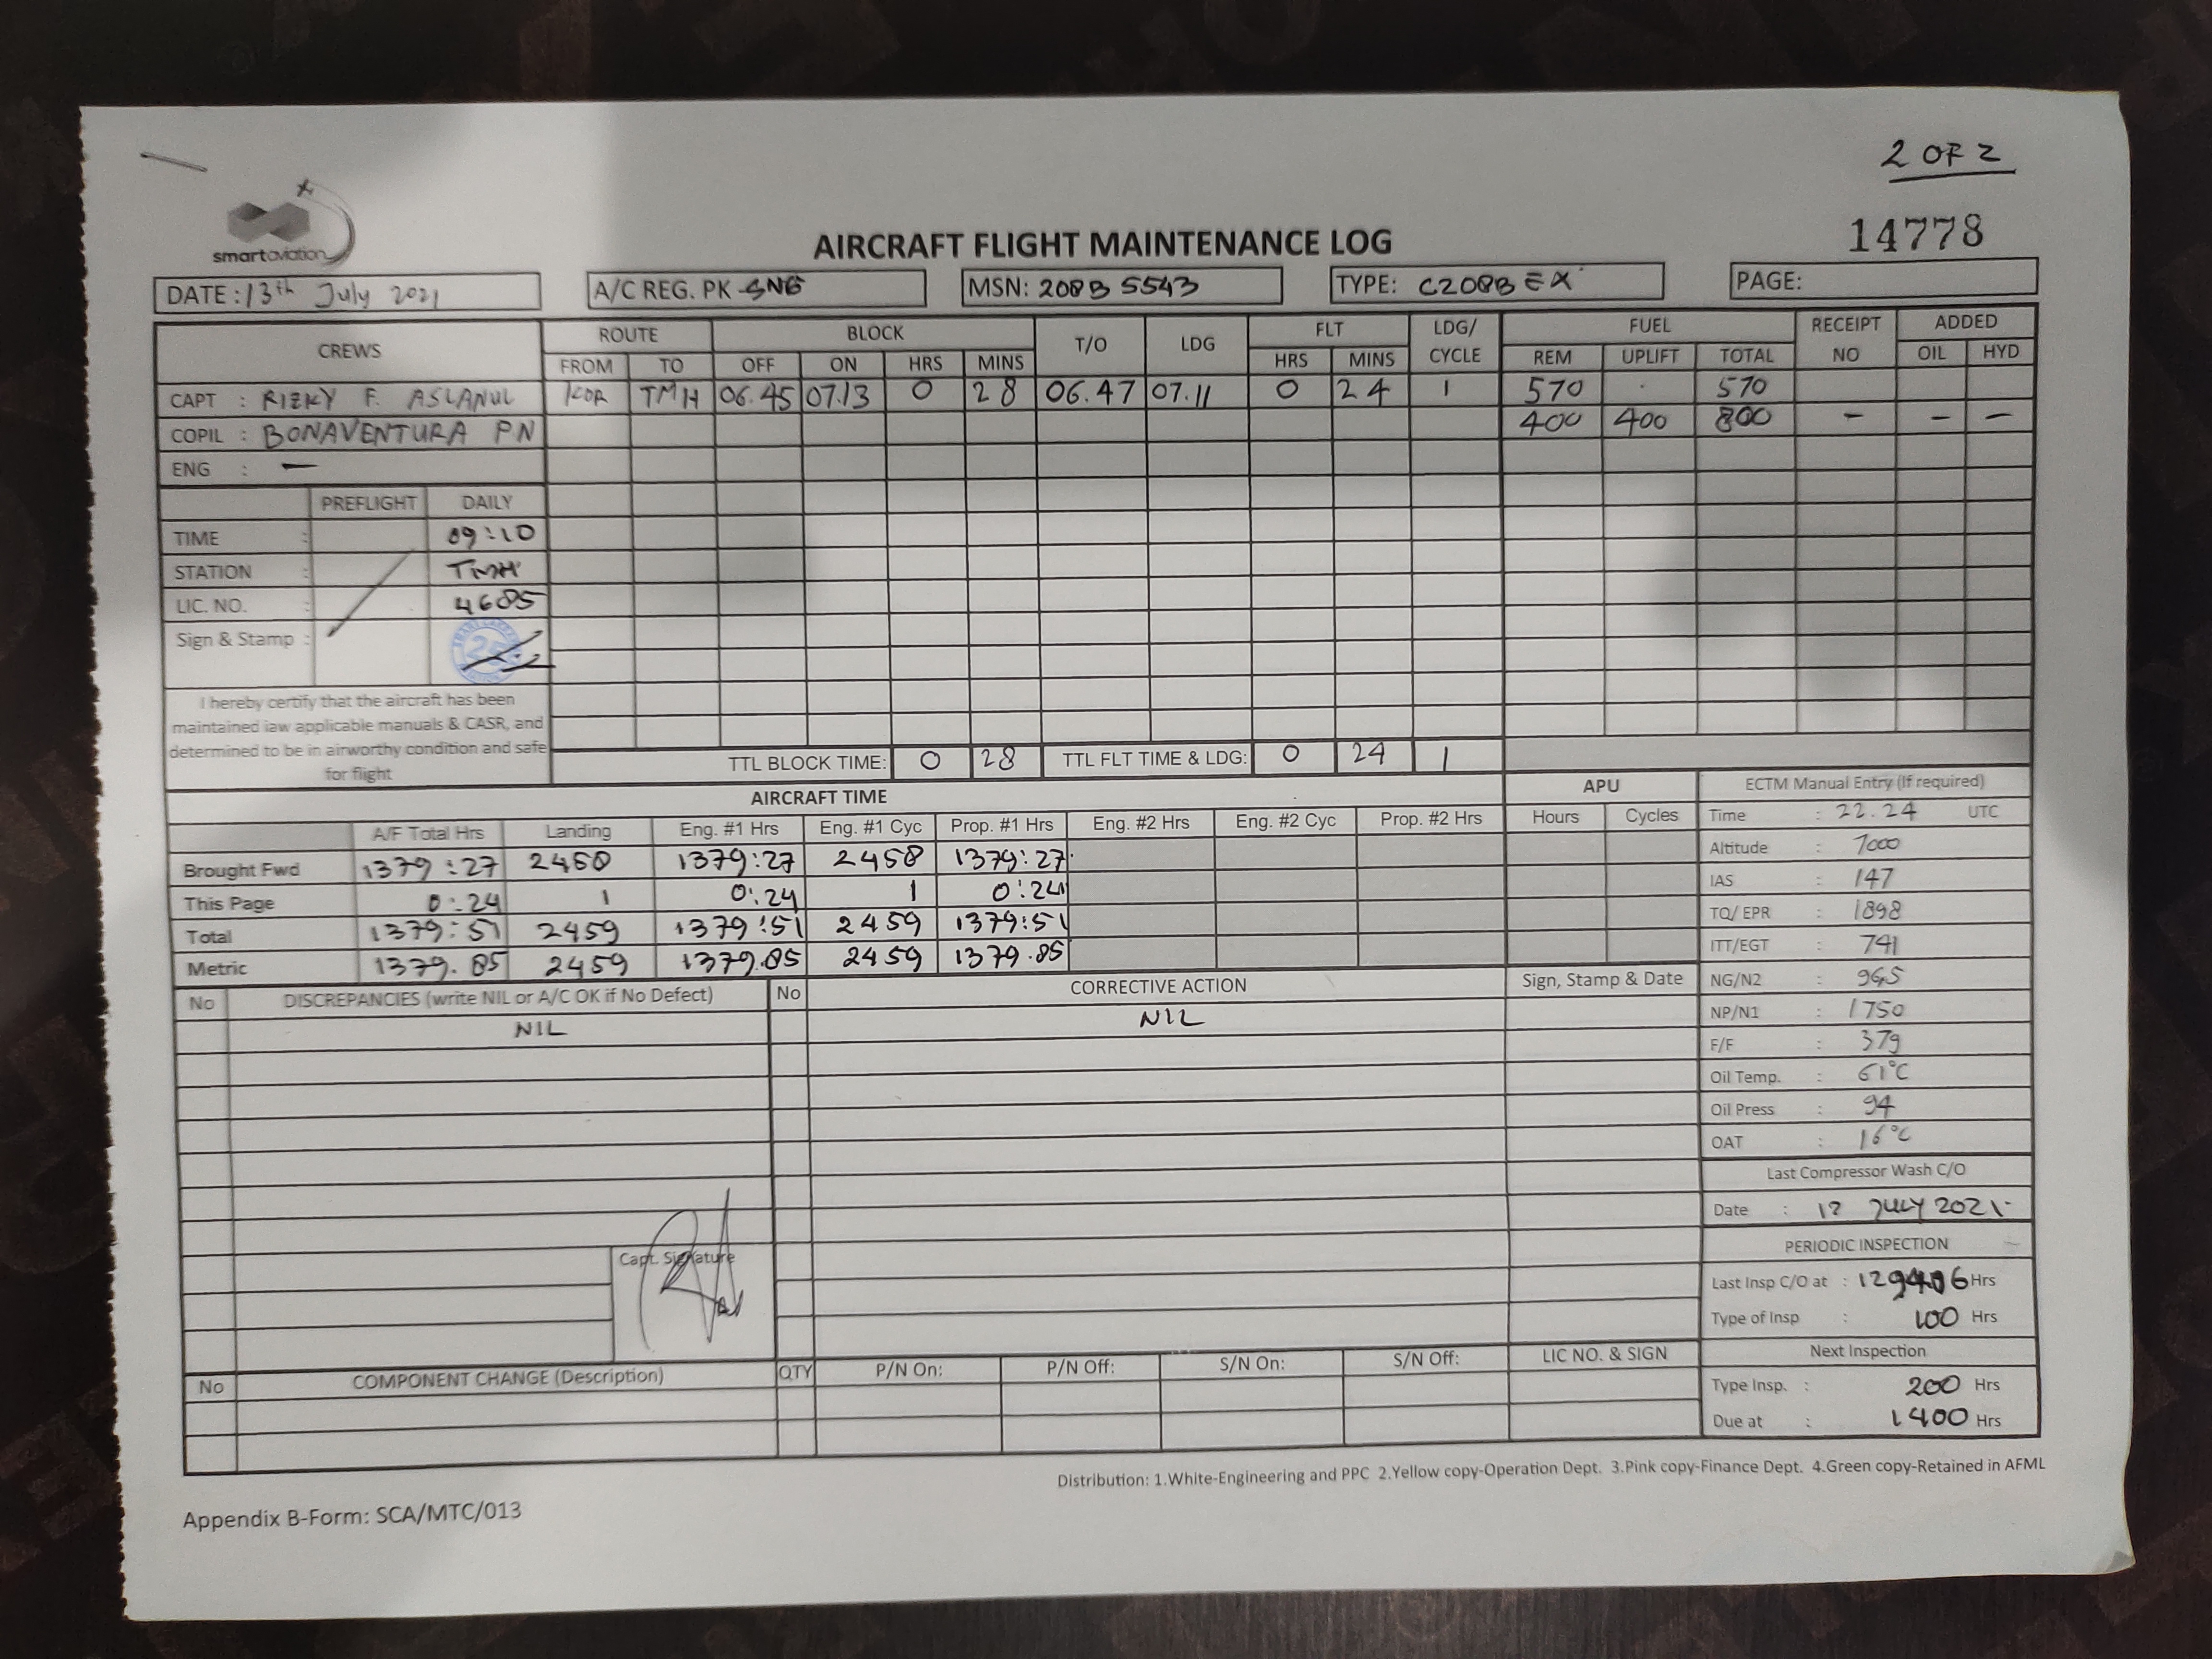 2 OF 2
14778
smartaviation
AIRCRAFT FLIGHT MAINTENANCE LOG
DATE : 13th July 2021
A/C REG. PK-SNG
MSN: 208B 5543
TYPE: C208B EX
PAGE:
CREWS ROUTE BLOCK T/O LDG FLT LDG/ CYCLE FUEL RECEIPT NO ADDED
FROM TO OFF ON HRS MINS HRS MINS REM UPLIFT TOTAL OIL HYD
CAPT : RIZKY F. ASLANUL KDR TMH 06.45 07.13 0 28 06.47 07.11 0 24 1 570 . 570
COPIL : BONAVENTURA PN 400 400 800 - - -
ENG : -
PREFLIGHT DAILY
TIME : 09:10
STATION : TMH
LIC. NO. : 4685
Sign & Stamp : 25
I hereby certify that the aircraft has been
maintained iaw applicable manuals & CASR, and
determined to be in airworthy condition and safe
for flight
TTL BLOCK TIME: 0 28 TTL FLT TIME & LDG: 0 24 1
AIRCRAFT TIME APU
A/F Total Hrs Landing Eng. #1 Hrs Eng. #1 Cyc Prop. #1 Hrs Eng. #2 Hrs Eng. #2 Cyc Prop. #2 Hrs Hours Cycles
Brought Fwd 1379:27 2458 1379:27 2458 1379:27
This Page 0:24 1 0:24 1 0:24
Total 1379:51 2459 1379:51 2459 1379:51
Metric 1379.85 2459 1379.85 2459 1379.85
ECTM Manual Entry (If required)
Time : 22.24 UTC
Altitude : 7000
IAS : 147
TQ/ EPR : 1898
ITT/EGT : 741
NG/N2 : 96,5
NP/N1 : 1750
F/F : 379
Oil Temp. : 61°C
Oil Press : 94
OAT : 16°C
Last Compressor Wash C/O
Date : 12 JULY 2021
PERIODIC INSPECTION
Last Insp C/O at : Hrs
Type of Insp : 100 Hrs
Next Inspection
Type Insp. : 200 Hrs
Due at : 1400 Hrs
No DISCREPANCIES (write NIL or A/C OK if No Defect) No CORRECTIVE ACTION Sign, Stamp & Date
NIL NIL
Capt. Signature
No COMPONENT CHANGE (Description) QTY P/N On: P/N Off: S/N On: S/N Off: LIC NO. & SIGN
Distribution: 1.White-Engineering and PPC 2.Yellow copy-Operation Dept. 3.Pink copy-Finance Dept. 4.Green copy-Retained in AFML
Appendix B-Form: SCA/MTC/013